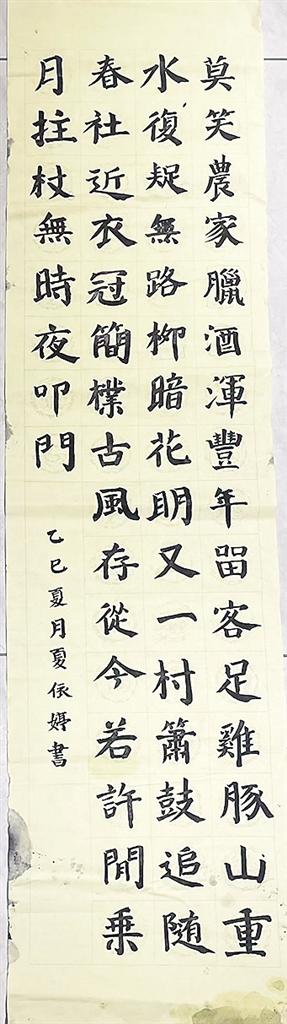 莫笑農家臘酒渾豐年畱客足雞豚山重
水復疑無路柳暗花明又一村簫鼓追随
春社近衣冠簡樸古風存從今若許閒乗
月拄杖無時夜叩門
乙巳夏月夏依婷書